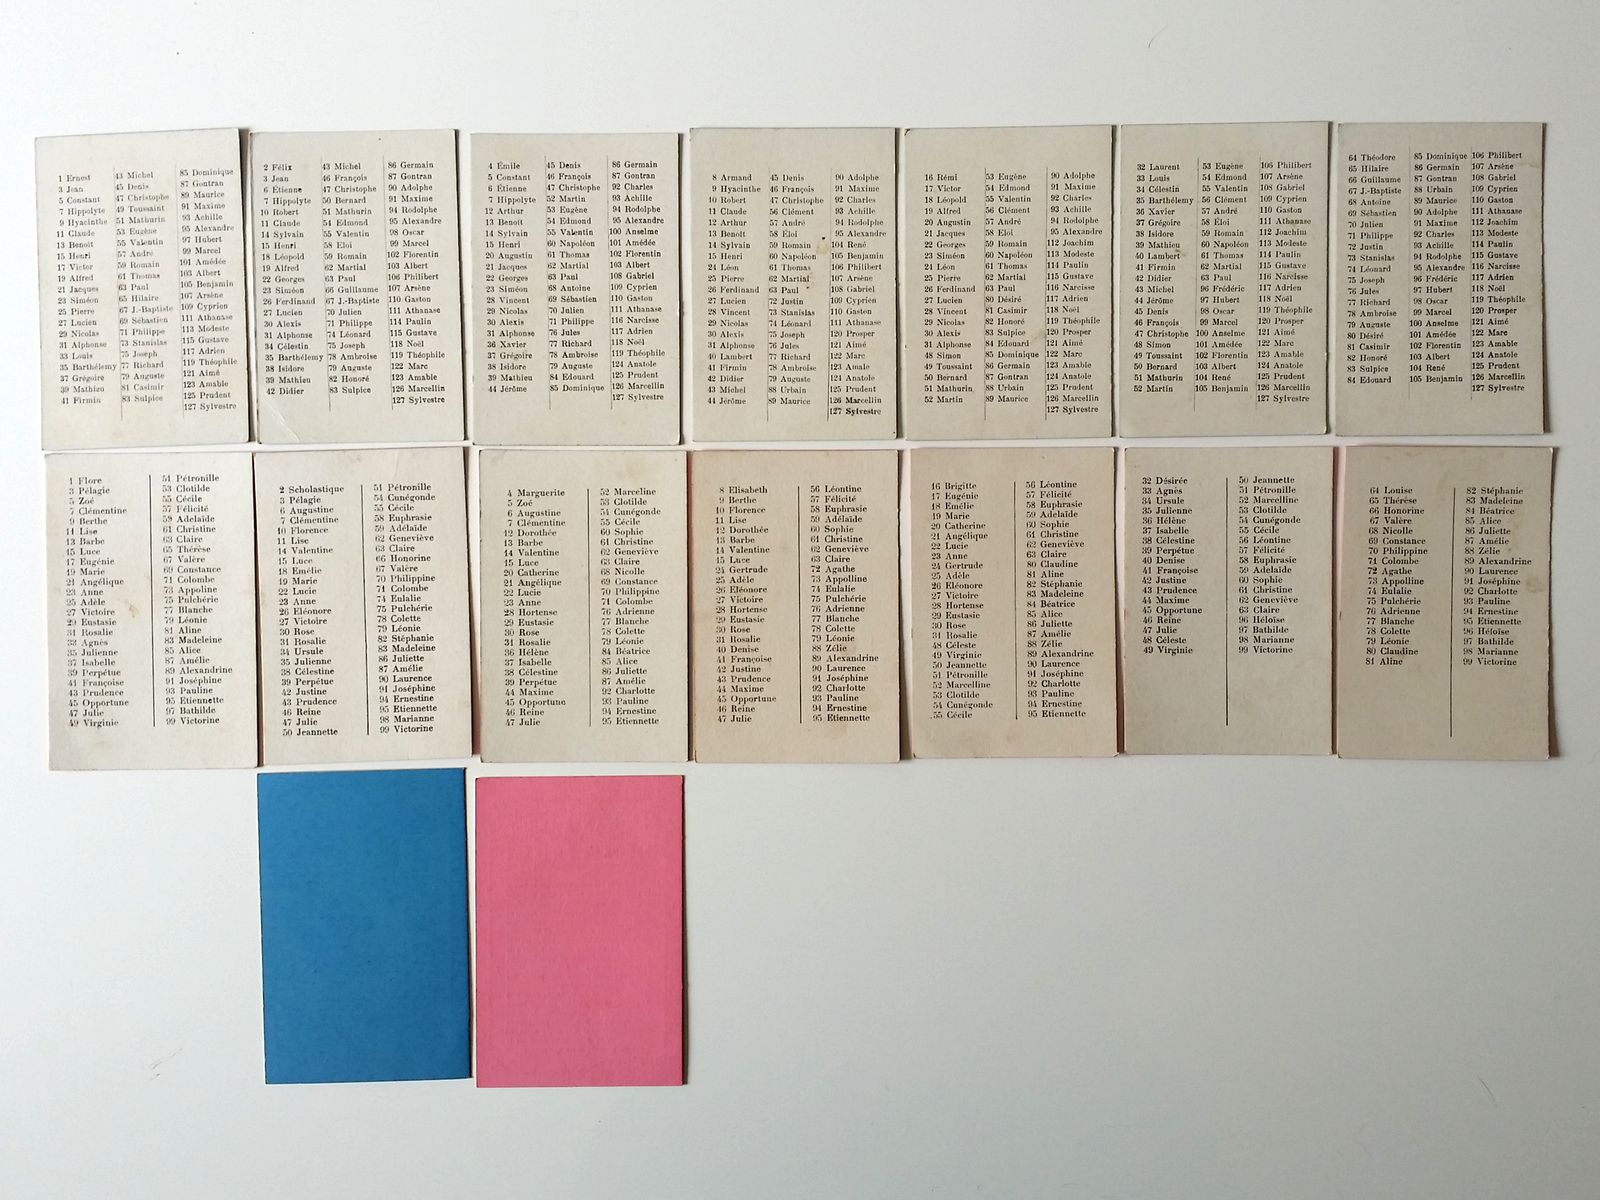 1 Ernest 43 Michel 85 Dominique
3 Jean 45 Denis 87 Gontran
5 Constant 47 Christophe 89 Maurice
7 Hippolyte 49 Toussaint 91 Maxime
9 Hyacinthe 51 Mathurin 93 Achille
11 Claude 53 Eugène 95 Alexandre
13 Benoit 55 Valentin 97 Hubert
15 Henri 57 André 99 Marcel
17 Victor 59 Romain 101 Amédée
19 Alfred 61 Thomas 103 Albert
21 Jacques 63 Paul 105 Benjamin
23 Siméon 65 Hilaire 107 Arsène
25 Pierre 67 J.-Baptiste 109 Cyprien
27 Lucien 69 Sébastien 111 Athanase
29 Nicolas 71 Philippe 113 Modeste
31 Alphonse 73 Stanislas 115 Gustave
33 Louis 75 Joseph 117 Adrien
35 Barthélemy 77 Richard 119 Théophile
37 Grégoire 79 Auguste 121 Aimé
39 Mathieu 81 Casimir 123 Amable
41 Firmin 83 Sulpice 125 Prudent
127 Sylvestre
2 Félix 43 Michel 86 Germain
3 Jean 46 François 87 Gontran
6 Étienne 47 Christophe 90 Adolphe
7 Hippolyte 50 Bernard 91 Maxime
10 Robert 51 Mathurin 94 Rodolphe
11 Claude 54 Edmond 95 Alexandre
14 Sylvain 55 Valentin 98 Oscar
15 Henri 58 Eloi 99 Marcel
18 Léopold 59 Romain 102 Florentin
19 Alfred 62 Martial 103 Albert
22 Georges 63 Paul 106 Philibert
23 Siméon 66 Guillaume 107 Arsène
26 Ferdinand 67 J.-Baptiste 110 Gaston
27 Lucien 70 Julien 111 Athanase
30 Alexis 71 Philippe 114 Paulin
31 Alphonse 74 Léonard 115 Gustave
34 Célestin 75 Joseph 118 Noël
35 Barthélemy 78 Ambroise 119 Théophile
38 Isidore 79 Auguste 122 Marc
39 Mathieu 82 Honoré 123 Amable
42 Didier 83 Sulpice 126 Marcellin
127 Sylvestre
4 Émile 45 Denis 86 Germain
5 Constant 46 François 87 Gontran
6 Étienne 47 Christophe 92 Charles
7 Hippolyte 52 Martin 93 Achille
12 Arthur 53 Eugène 94 Rodolphe
13 Benoit 54 Edmond 95 Alexandre
14 Sylvain 55 Valentin 100 Anselme
15 Henri 60 Napoléon 101 Amédée
20 Augustin 61 Thomas 102 Florentin
21 Jacques 62 Martial 103 Albert
22 Georges 63 Paul 108 Gabriel
23 Siméon 68 Antoine 109 Cyprien
28 Vincent 69 Sébastien 110 Gaston
29 Nicolas 70 Julien 111 Athanase
30 Alexis 71 Philippe 116 Narcisse
31 Alphonse 76 Jules 117 Adrien
36 Xavier 77 Richard 118 Noël
37 Grégoire 78 Ambroise 119 Théophile
38 Isidore 79 Auguste 124 Anatole
39 Mathieu 84 Edouard 125 Prudent
44 Jérôme 85 Dominique 126 Marcellin
127 Sylvestre
8 Armand 45 Denis 90 Adolphe
9 Hyacinthe 46 François 91 Maxime
10 Robert 47 Christophe 92 Charles
11 Claude 56 Clément 93 Achille
12 Arthur 57 André 94 Rodolphe
13 Benoît 58 Éloi 95 Alexandre
14 Sylvain 59 Romain 104 René
15 Henri 60 Napoléon 105 Benjamin
24 Léon 61 Thomas 106 Philibert
25 Pierre 62 Martial 107 Arsène
26 Ferdinand 63 Paul 108 Gabriel
27 Lucien 72 Justin 109 Cyprien
28 Vincent 73 Stanislas 110 Gaston
29 Nicolas 74 Léonard 111 Athanase
30 Alexis 75 Joseph 120 Prosper
31 Alphonse 76 Jules 121 Aimé
40 Lambert 77 Richard 122 Marc
41 Firmin 78 Ambroise 123 Amale
42 Didier 79 Auguste 124 Anatole
43 Michel 88 Urbain 125 Prudent
44 Jérôme 89 Maurice 126 Marcellin
127 Sylvestre
16 Rémi 53 Eugène 90 Adolphe
17 Victor 54 Edmond 91 Maxime
18 Léopold 55 Valentin 92 Charles
19 Alfred 56 Clément 93 Achille
20 Augustin 57 André 94 Rodolphe
21 Jacques 58 Éloi 95 Alexandre
22 Georges 59 Romain 112 Joachim
23 Siméon 60 Napoléon 113 Modeste
24 Léon 61 Thomas 114 Paulin
25 Pierre 62 Martial 115 Gustave
26 Ferdinand 63 Paul 116 Narcisse
27 Lucien 80 Désiré 117 Adrien
28 Vincent 81 Casimir 118 Noël
29 Nicolas 82 Honoré 119 Théophile
30 Alexis 83 Sulpice 120 Prosper
31 Alphonse 84 Edouard 121 Aimé
48 Simon 85 Dominique 122 Marc
49 Toussaint 86 Germain 123 Amable
50 Bernard 87 Gontran 124 Anatole
51 Mathurin 88 Urbain 125 Prudent
52 Martin 89 Maurice 126 Marcellin
127 Sylvestre
32 Laurent 53 Eugène 106 Philibert
33 Louis 54 Edmond 107 Arsène
34 Célestin 55 Valentin 108 Gabriel
35 Barthélemy 56 Clément 109 Cyprien
36 Xavier 57 André 110 Gaston
37 Grégoire 58 Éloi 111 Athanase
38 Isidore 59 Romain 112 Joachim
39 Mathieu 60 Napoléon 113 Modeste
40 Lambert 61 Thomas 114 Paulin
41 Firmin 62 Martial 115 Gustave
42 Didier 63 Paul 116 Narcisse
43 Michel 96 Frédéric 117 Adrien
44 Jérôme 97 Hubert 118 Noël
45 Denis 98 Oscar 119 Théophile
46 François 99 Marcel 120 Prosper
47 Christophe 100 Anselme 121 Aimé
48 Simon 101 Amédée 122 Marc
49 Toussaint 102 Florentin 123 Amable
50 Bernard 103 Albert 124 Anatole
51 Mathurin 104 René 125 Prudent
52 Martin 105 Benjamin 126 Marcellin
127 Sylvestre
64 Théodore 85 Dominique 106 Philibert
65 Hilaire 86 Germain 107 Arsène
66 Guillaume 87 Gontran 108 Gabriel
67 J.-Baptiste 88 Urbain 109 Cyprien
68 Antoine 89 Maurice 110 Gaston
69 Sébastien 90 Adolphe 111 Athanase
70 Julien 91 Maxime 112 Joachim
71 Philippe 92 Charles 113 Modeste
72 Justin 93 Achille 114 Paulin
73 Stanislas 94 Rodolphe 115 Gustave
74 Léonard 95 Alexandre 116 Narcisse
75 Joseph 96 Frédéric 117 Adrien
76 Jules 97 Hubert 118 Noël
77 Richard 98 Oscar 119 Théophile
78 Ambroise 99 Marcel 120 Prosper
79 Auguste 100 Anselme 121 Aimé
80 Désiré 101 Amédée 122 Marc
81 Casimir 102 Florentin 123 Amable
82 Honoré 103 Albert 124 Anatole
83 Sulpice 104 René 125 Prudent
84 Edouard 105 Benjamin 126 Marcellin
127 Sylvestre
1 Flore 51 Pétronille
3 Pélagie 53 Clotilde
5 Zoé 55 Cécile
7 Clémentine 57 Félicité
9 Berthe 59 Adelaïde
11 Lise 61 Christine
13 Barbe 63 Claire
15 Luce 65 Thérèse
17 Eugénie 67 Valère
19 Marie 69 Constance
21 Angélique 71 Colombe
23 Anne 73 Appoline
25 Adèle 75 Pulchérie
27 Victoire 77 Blanche
29 Eustasie 79 Léonie
31 Rosalie 81 Aline
33 Agnès 83 Madeleine
35 Julienne 85 Alice
37 Isabelle 87 Amélie
39 Perpétue 89 Alexandrine
41 Françoise 91 Joséphine
43 Prudence 93 Pauline
45 Opportune 95 Etiennette
47 Julie 97 Bathilde
49 Virginie 99 Victorine
2 Scholastique 51 Pétronille
3 Pélagie 54 Cunégonde
6 Augustine 55 Cécile
7 Clémentine 58 Euphrasie
10 Florence 59 Adélaïde
11 Lise 62 Geneviève
14 Valentine 63 Claire
15 Luce 66 Honorine
18 Emélie 67 Valère
19 Marie 70 Philippine
22 Lucie 71 Colombe
23 Anne 74 Eulalie
26 Eléonore 75 Pulchérie
27 Victoire 78 Colette
30 Rose 79 Léonie
31 Rosalie 82 Stéphanie
34 Ursule 83 Madeleine
35 Julienne 86 Juliette
38 Célestine 87 Amélie
39 Perpétue 90 Laurence
42 Justine 91 Joséphine
43 Prudence 94 Ernestine
46 Reine 95 Etiennette
47 Julie 98 Marianne
50 Jeannette 99 Victorine
4 Marguerite 52 Marceline
5 Zoé 53 Clotilde
6 Augustine 54 Cunégonde
7 Clémentine 55 Cécile
12 Dorothée 60 Sophie
13 Barbe 61 Christine
14 Valentine 62 Geneviève
15 Luce 63 Claire
20 Catherine 68 Nicolle
21 Angélique 69 Constance
22 Lucie 70 Philippine
23 Anne 71 Colombe
28 Hortense 76 Adrienne
29 Eustasie 77 Blanche
30 Rose 78 Colette
31 Rosalie 79 Léonie
36 Hélène 84 Béatrice
37 Isabelle 85 Alice
38 Célestine 86 Juliette
39 Perpétue 87 Amélie
44 Maxime 92 Charlotte
45 Opportune 93 Pauline
46 Reine 94 Ernestine
47 Julie 95 Etiennette
8 Elisabeth 56 Léontine
9 Berthe 57 Félicité
10 Florence 58 Euphrasie
11 Lise 59 Adélaïde
12 Dorothée 60 Sophie
13 Barbe 61 Christine
14 Valentine 62 Geneviève
15 Luce 63 Claire
24 Gertrude 72 Agathe
25 Adèle 73 Appolline
26 Eléonore 74 Eulalie
27 Victoire 75 Pulchérie
28 Hortense 76 Adrienne
29 Eustasie 77 Blanche
30 Rose 78 Colette
31 Rosalie 79 Léonie
40 Denise 88 Zélie
41 Françoise 89 Alexandrine
42 Justine 90 Laurence
43 Prudence 91 Joséphine
44 Maxime 92 Charlotte
45 Opportune 93 Pauline
46 Reine 94 Ernestine
47 Julie 95 Etiennette
16 Brigitte 56 Léontine
17 Eugénie 57 Félicité
18 Emélie 58 Euphrasie
19 Marie 59 Adélaïde
20 Catherine 60 Sophie
21 Angélique 61 Christine
22 Lucie 62 Geneviève
23 Anne 63 Claire
24 Gertrude 80 Claudine
25 Adèle 81 Aline
26 Eléonore 82 Stéphanie
27 Victoire 83 Madeleine
28 Hortense 84 Béatrice
29 Eustasie 85 Alice
30 Rose 86 Juliette
31 Rosalie 87 Amélie
48 Céleste 88 Zélie
49 Virginie 89 Alexandrine
50 Jeannette 90 Laurence
51 Pétronille 91 Joséphine
52 Marcelline 92 Charlotte
53 Clotilde 93 Pauline
54 Cunégonde 94 Ernestine
55 Cécile 95 Etiennette
32 Désirée 50 Jeannette
33 Agnès 51 Pétronille
34 Ursule 52 Marcelline
35 Julienne 53 Clotilde
36 Hélène 54 Cunégonde
37 Isabelle 55 Cécile
38 Célestine 56 Léontine
39 Perpétue 57 Félicité
40 Denise 58 Euphrasie
41 Françoise 59 Adélaïde
42 Justine 60 Sophie
43 Prudence 61 Christine
44 Maxime 62 Geneviève
45 Opportune 63 Claire
46 Reine 96 Héloïse
47 Julie 97 Bathilde
48 Céleste 98 Marianne
49 Virginie 99 Victorine
64 Louise 82 Stéphanie
65 Thérèse 83 Madeleine
66 Honorine 84 Béatrice
67 Valère 85 Alice
68 Nicolle 86 Juliette
69 Constance 87 Amélie
70 Philippine 88 Zélie
71 Colombe 89 Alexandrine
72 Agathe 90 Laurence
73 Appolline 91 Joséphine
74 Eulalie 92 Charlotte
75 Pulchérie 93 Pauline
76 Adrienne 94 Ernestine
77 Blanche 95 Etiennette
78 Colette 96 Héloïse
79 Léonie 97 Bathilde
80 Claudine 98 Marianne
81 Aline 99 Victorine